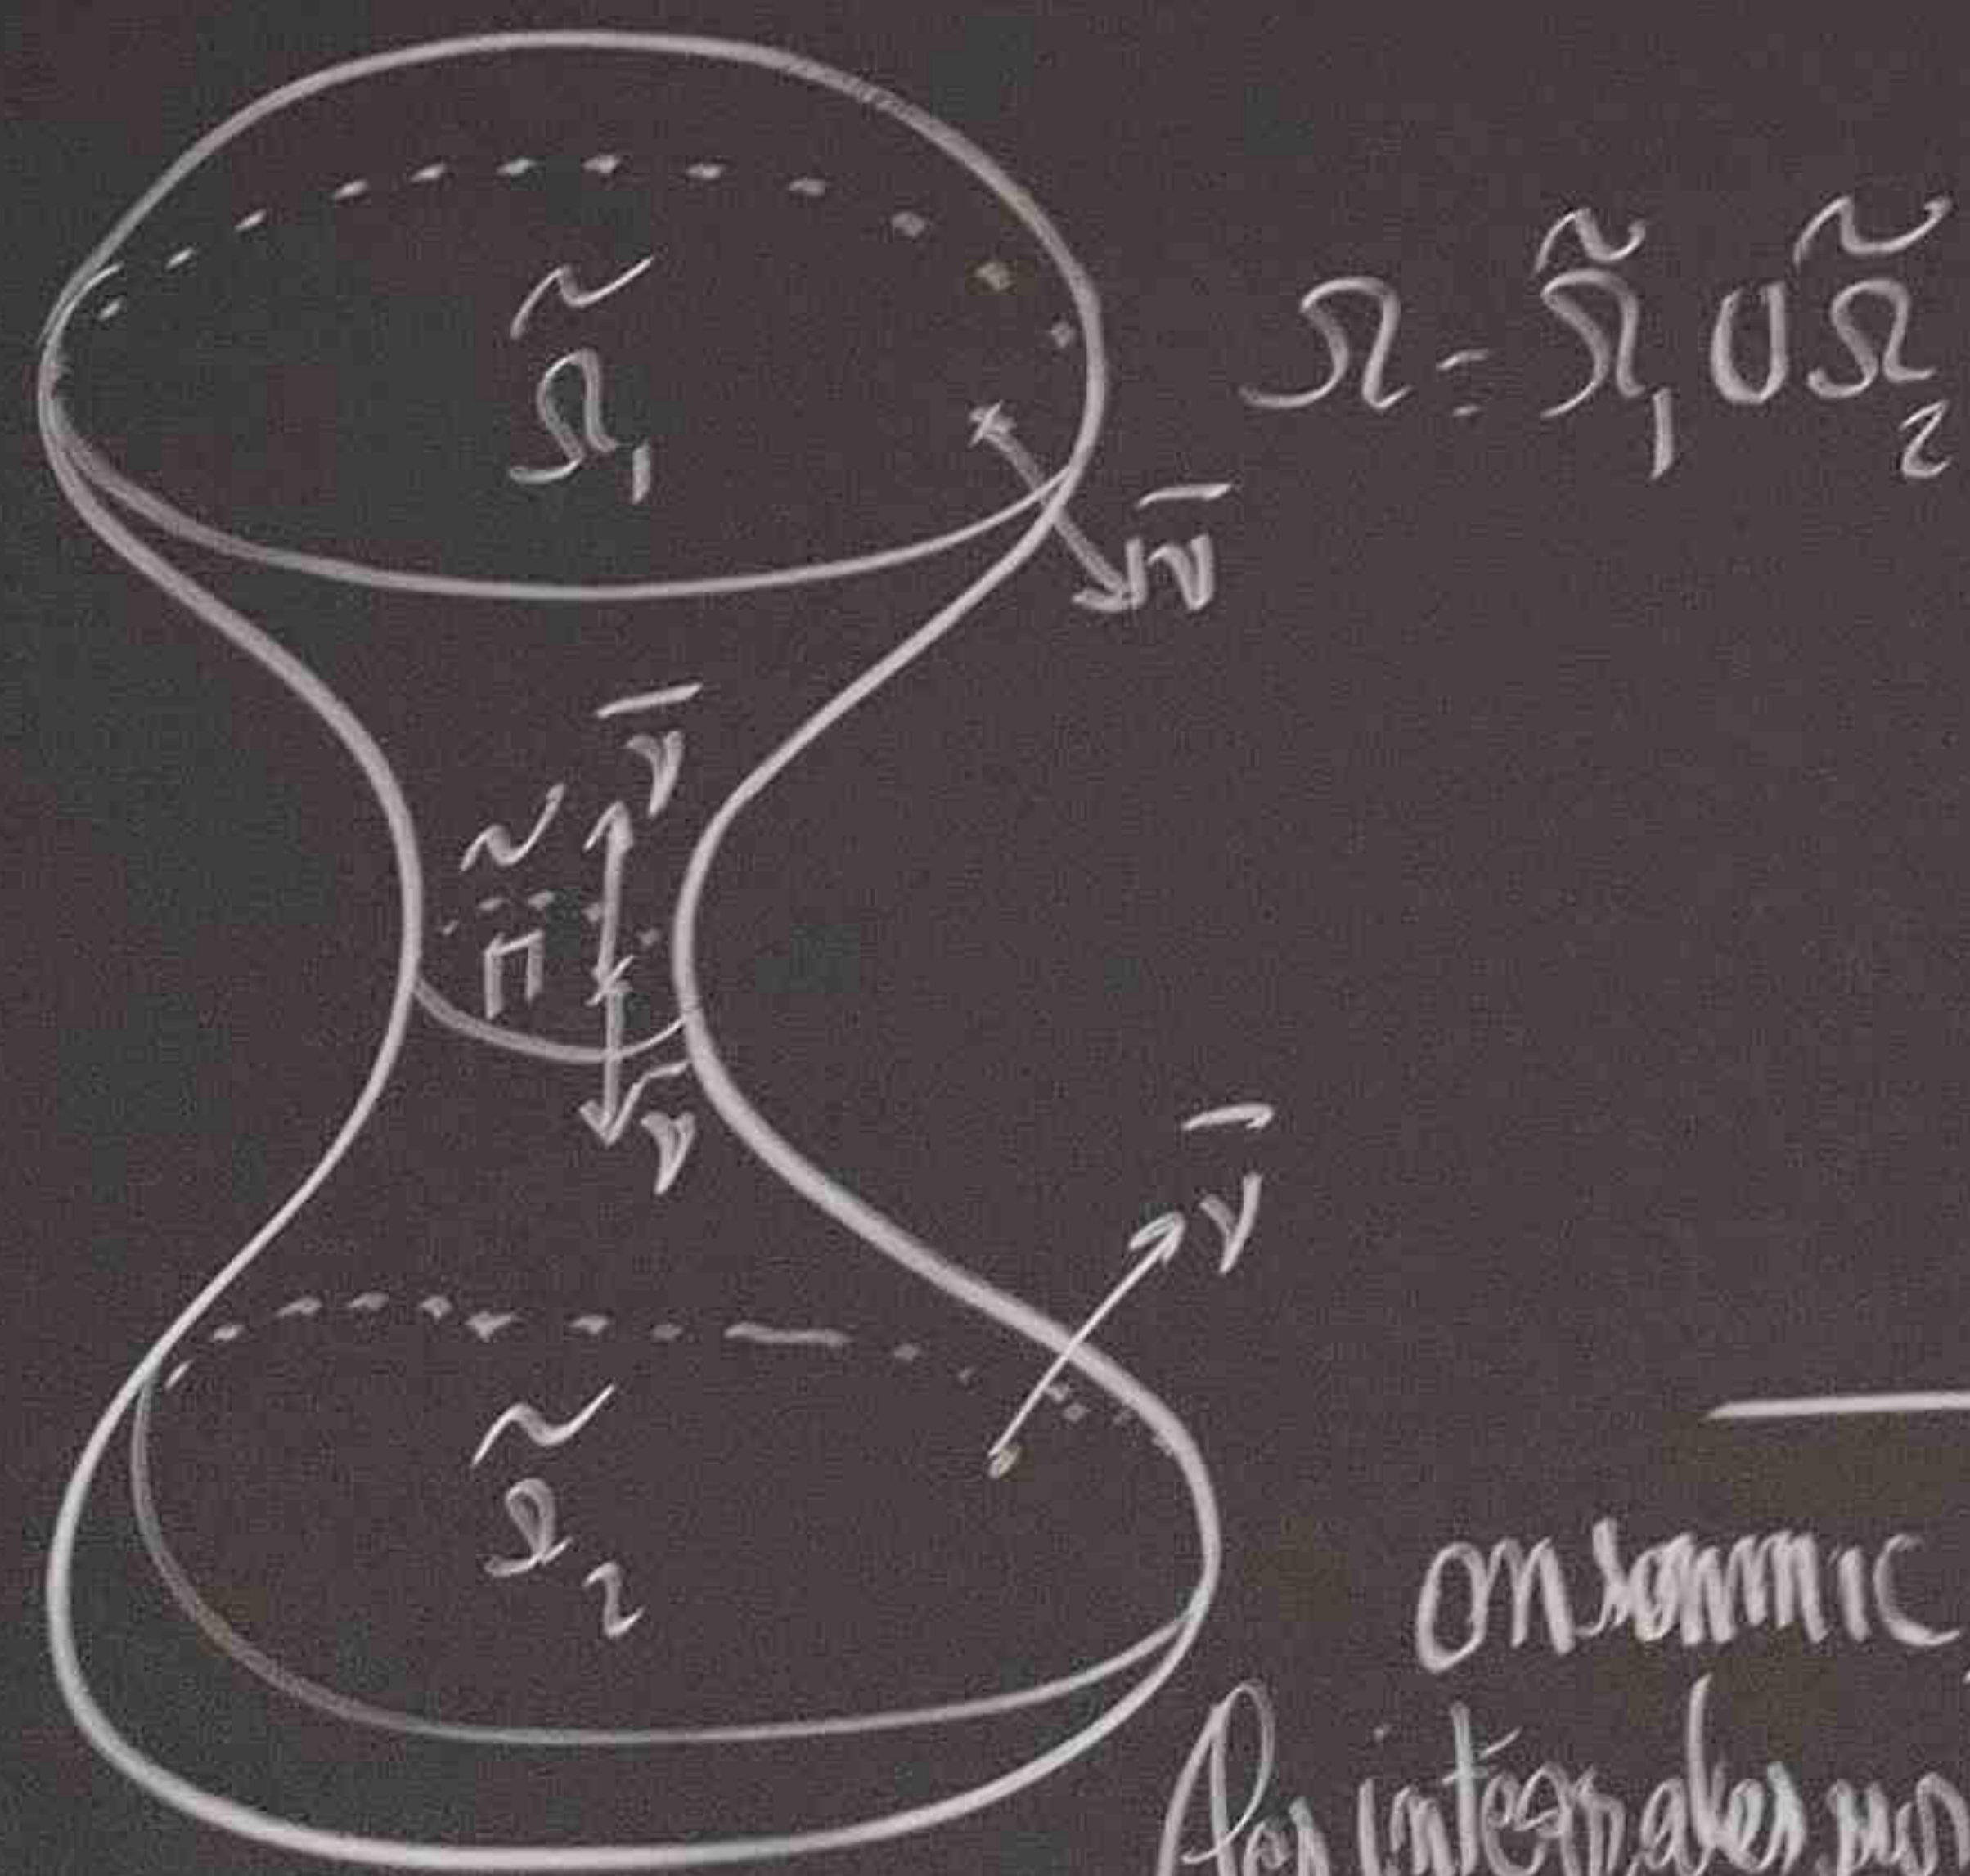 Ω̃₁
Ω = Ω̃₁ ∪ Ω̃₂
ν̄
ν̄
Π̃
ν̄
ν̄
Ω̃₂
on somme
les intégrales sur